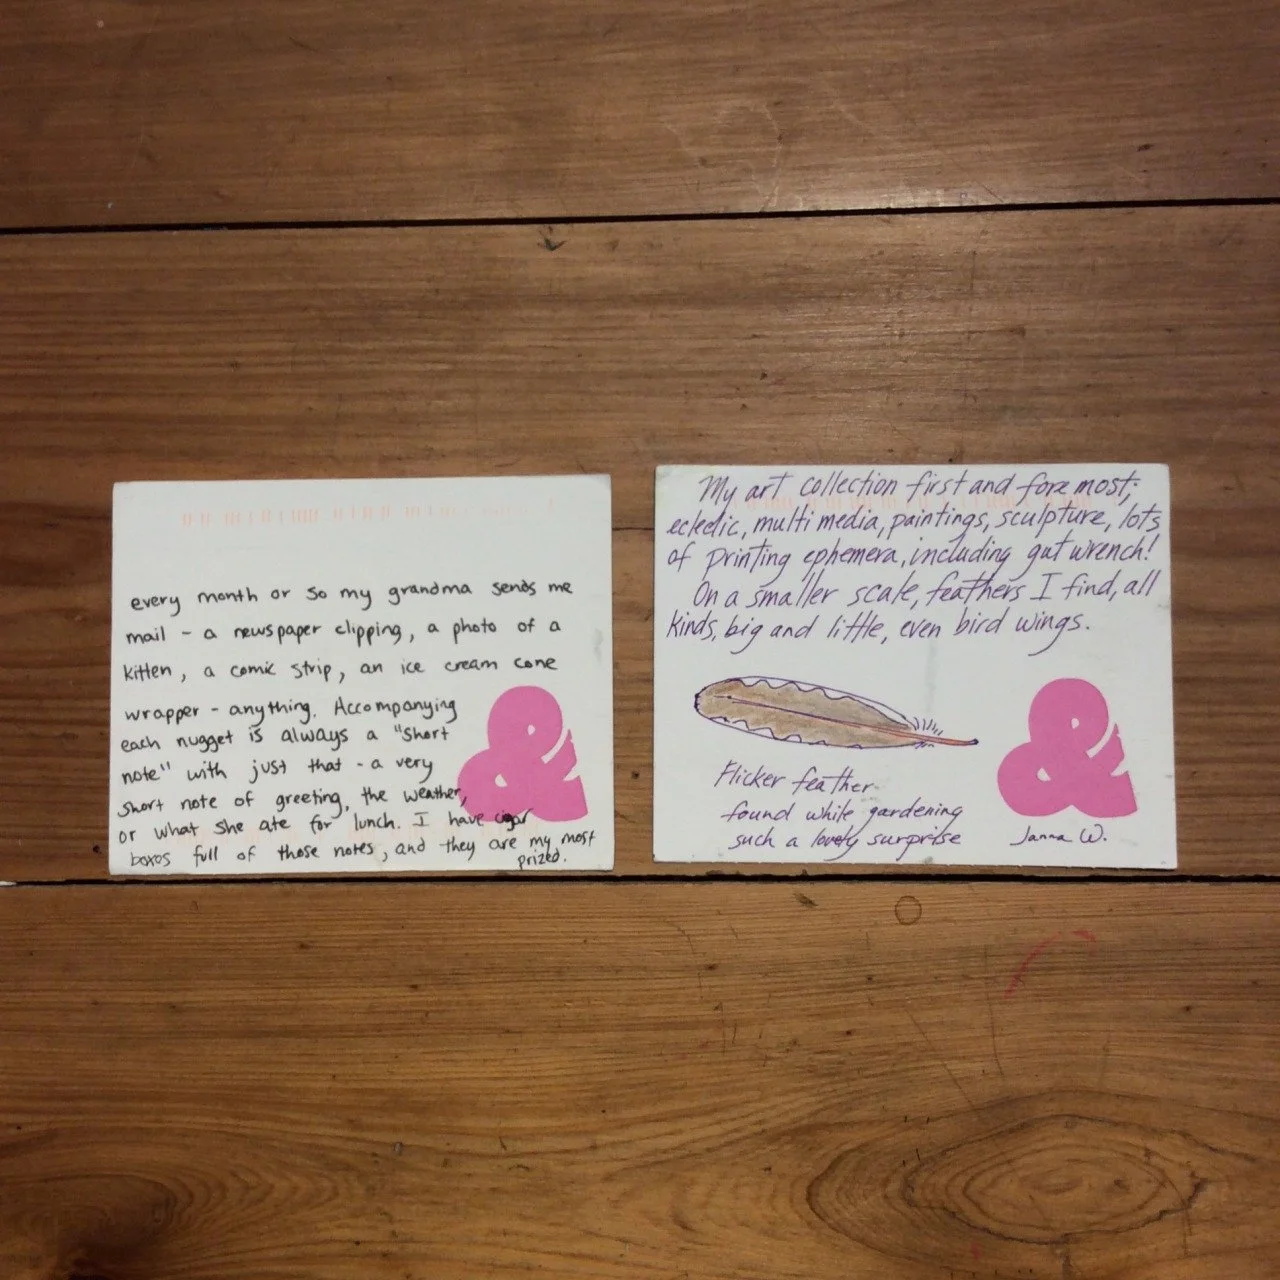 every month or so my grandma sends me
mail - a newspaper clipping, a photo of a
kitten, a comic strip, an ice cream cone
wrapper - anything. Accompanying
each nugget is always a "short
note" with just that - a very
short note of greeting, the weather,
or what she ate for lunch. I have cigar
boxes full of those notes, and they are my most
prized.
&
My art collection first and foremost;
ecledic, multi media, paintings, sculpture, lots
of printing ephemera, including gut wrench!
On a smaller scale, feathers I find, all
kinds, big and little, even bird wings.
Flicker feather
found while gardening
such a lovely surprise
&
Janna W.